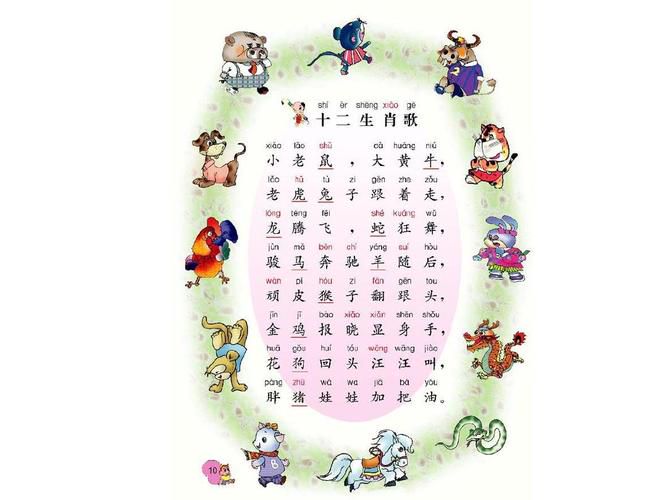 shí èr shēng xiào gē
十二生肖歌
xiǎo lǎo shǔ dà huáng niú
小老鼠，大黄牛，
lǎo hǔ tù zi gēn zhe zǒu
老虎兔子跟着走，
lóng téng fēi shé kuáng wǔ
龙腾飞，蛇狂舞，
jùn mǎ bēn chí yáng suí hòu
骏马奔驰羊随后，
wán pí hóu zi fān gēn tou
顽皮猴子翻跟头，
jīn jī bào xiǎo xiǎn shēn shǒu
金鸡报晓显身手，
huā gǒu huí tóu wāng wāng jiào
花狗回头汪汪叫，
pàng zhū wá wa jiā bǎ yóu
胖猪娃娃加把油。
10